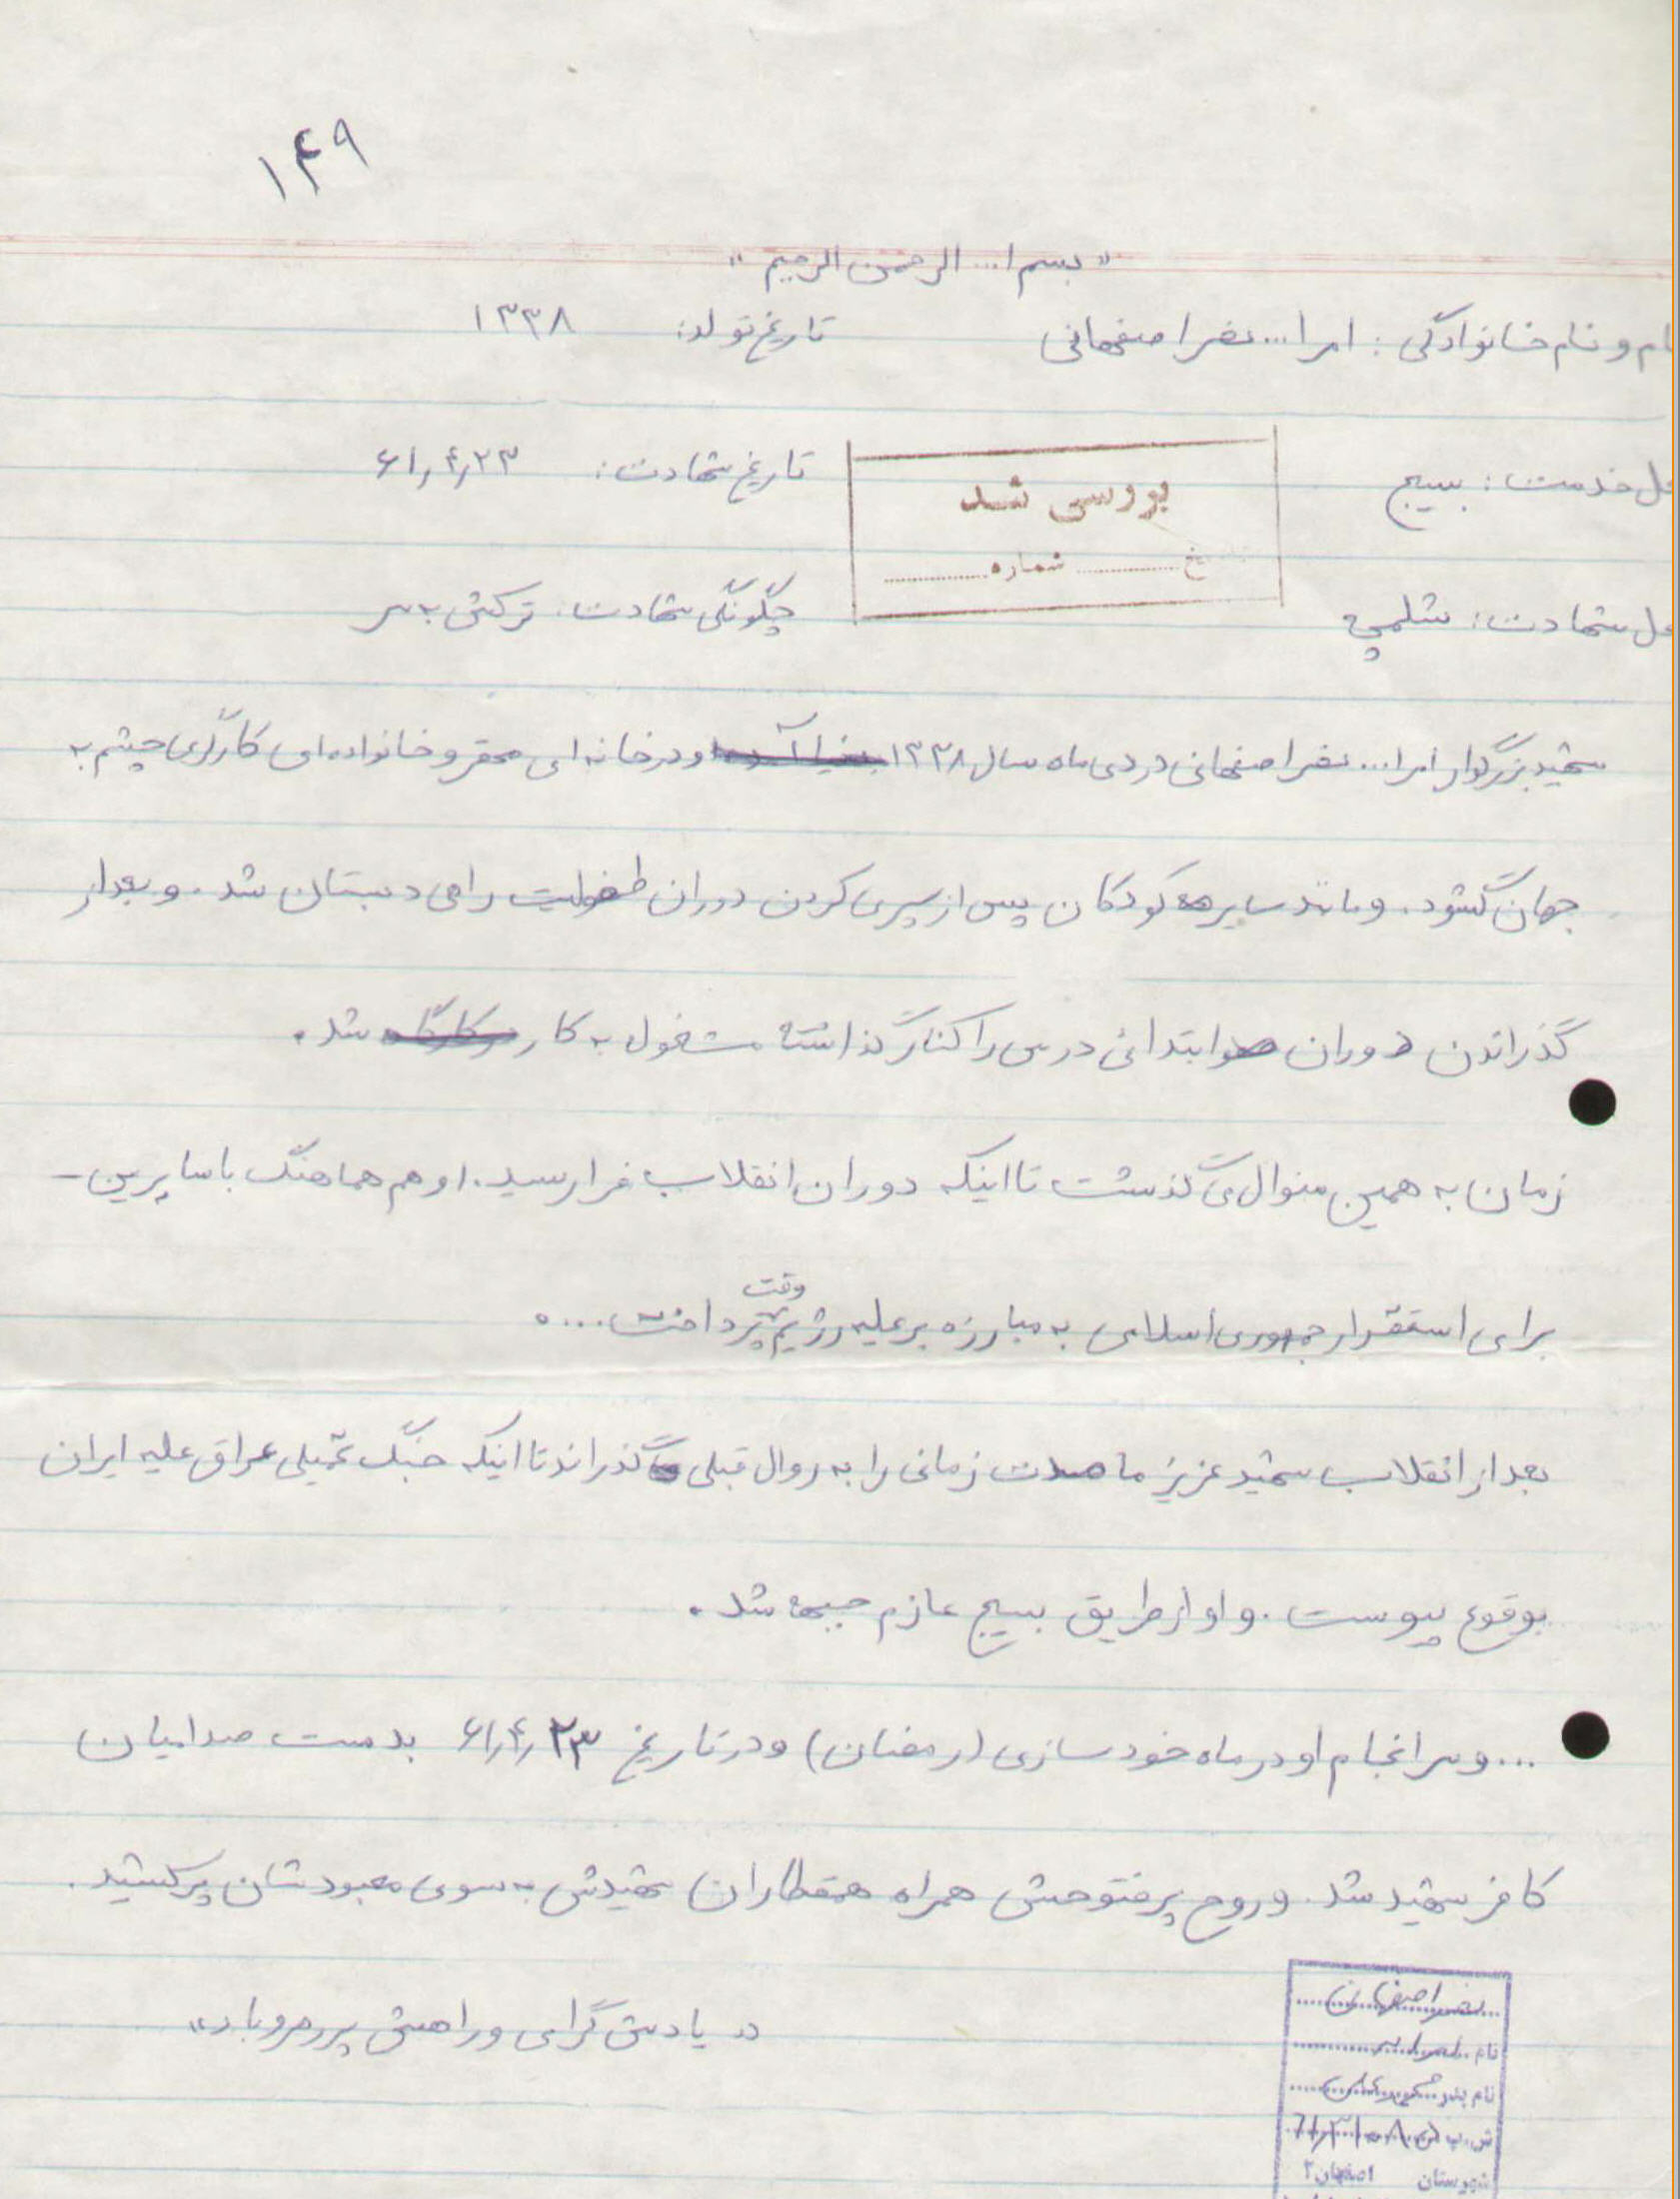 ۱۴۹
« بسم ا... الرحمن الرحیم »
نام و نام خانوادگی : امرا... نصراصفهانی تاریخ تولد: ۱۳۳۸
محل خدمت : بسیج تاریخ شهادت: ۶۱٫۴٫۲۳
بررسی شد
تاریخ ........ شماره ........
محل شهادت: شلمچه چگونگی شهادت: ترکش به سر
شهید بزرگوار امرا... نصراصفهانی در دی ماه سال ۱۳۳۸ و در خانه ای محقر و خانواده ای کارگری چشم به
جهان گشود. و مانند سایر کودکان پس از سپری کردن دوران طفولیت راهی دبستان شد. و بعد از
گذراندن دوران ابتدائی درس را کنار گذاشته مشغول به کار شد.
زمان به همین منوال می گذشت تا اینکه دوران انقلاب فرا رسید. او هم هماهنگ با سایرین -
برای استقرار جمهوری اسلامی به مبارزه بر علیه رژیم وقت پرداخت ....
بعد از انقلاب شهید عزیز ما مدت زمانی را به روال قبلی گذراند تا اینکه جنگ تحمیلی عراق علیه ایران
بوقوع پیوست. و او از طریق بسیج عازم جبهه شد.
... و سرانجام او در ماه خودسازی (رمضان) و در تاریخ ۶۱٫۴٫۲۳ بدست صدامیان
کافر شهید شد. و روح پرفتوحش همراه همقطاران شهیدش به سوی معبودشان پر کشید.
« یادش گرامی و راهش پررهرو باد »
نصراصفهانی
نام
نام پدر
شهرستان اصفهان ۲